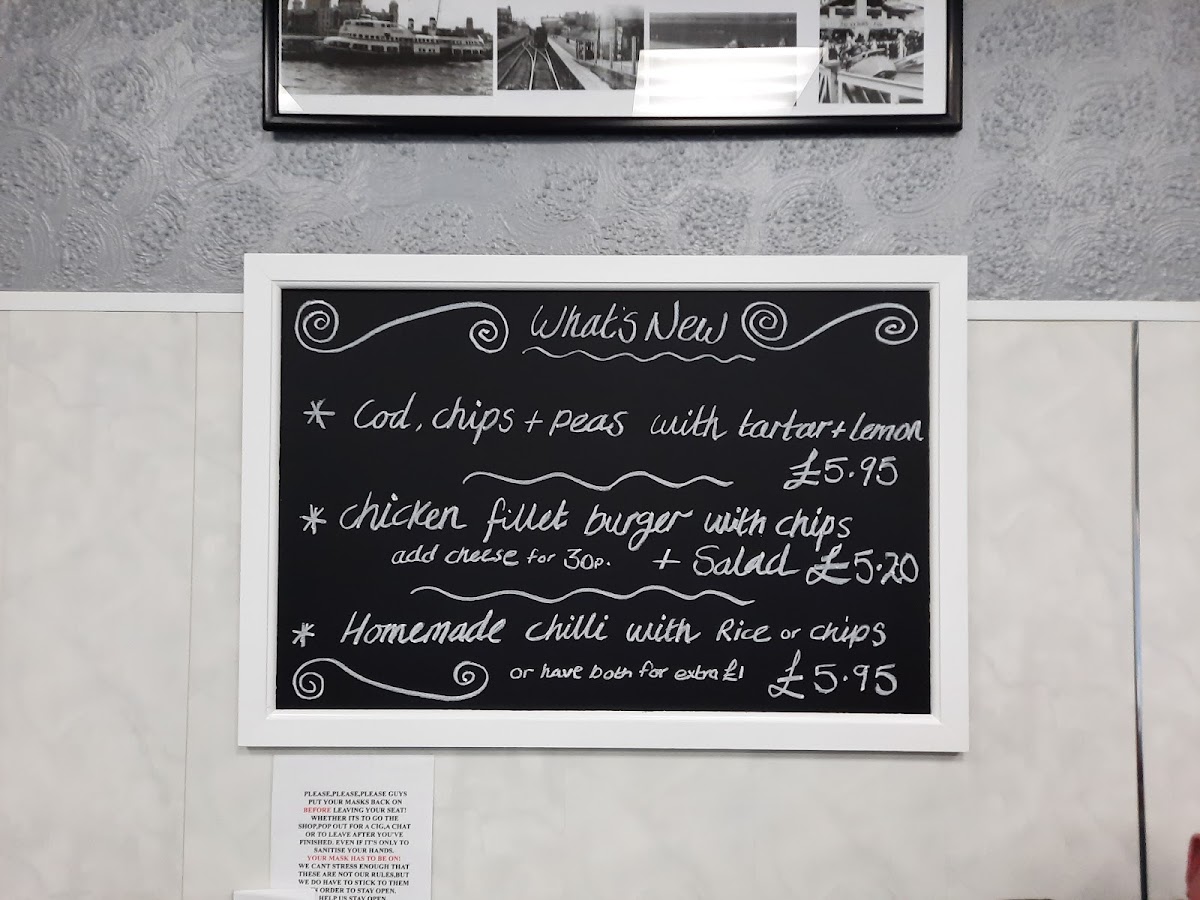 What's New
* Cod, chips + peas with tartar + lemon
£5.95
* chicken fillet burger with chips
add cheese for 30p. + Salad £5.20
* Homemade chilli with Rice or chips
or have both for extra £1 £5.95
PLEASE,PLEASE,PLEASE GUYS
PUT YOUR MASKS BACK ON
BEFORE LEAVING YOUR SEAT!
WHETHER ITS TO GO THE
SHOP,POP OUT FOR A CIG,A CHAT
OR TO LEAVE AFTER YOU'VE
FINISHED. EVEN IF IT'S ONLY TO
SANITISE YOUR HANDS.
YOUR MASK HAS TO BE ON!
WE CANT STRESS ENOUGH THAT
THESE ARE NOT OUR RULES,BUT
WE DO HAVE TO STICK TO THEM
IN ORDER TO STAY OPEN.
HELP US STAY OPEN